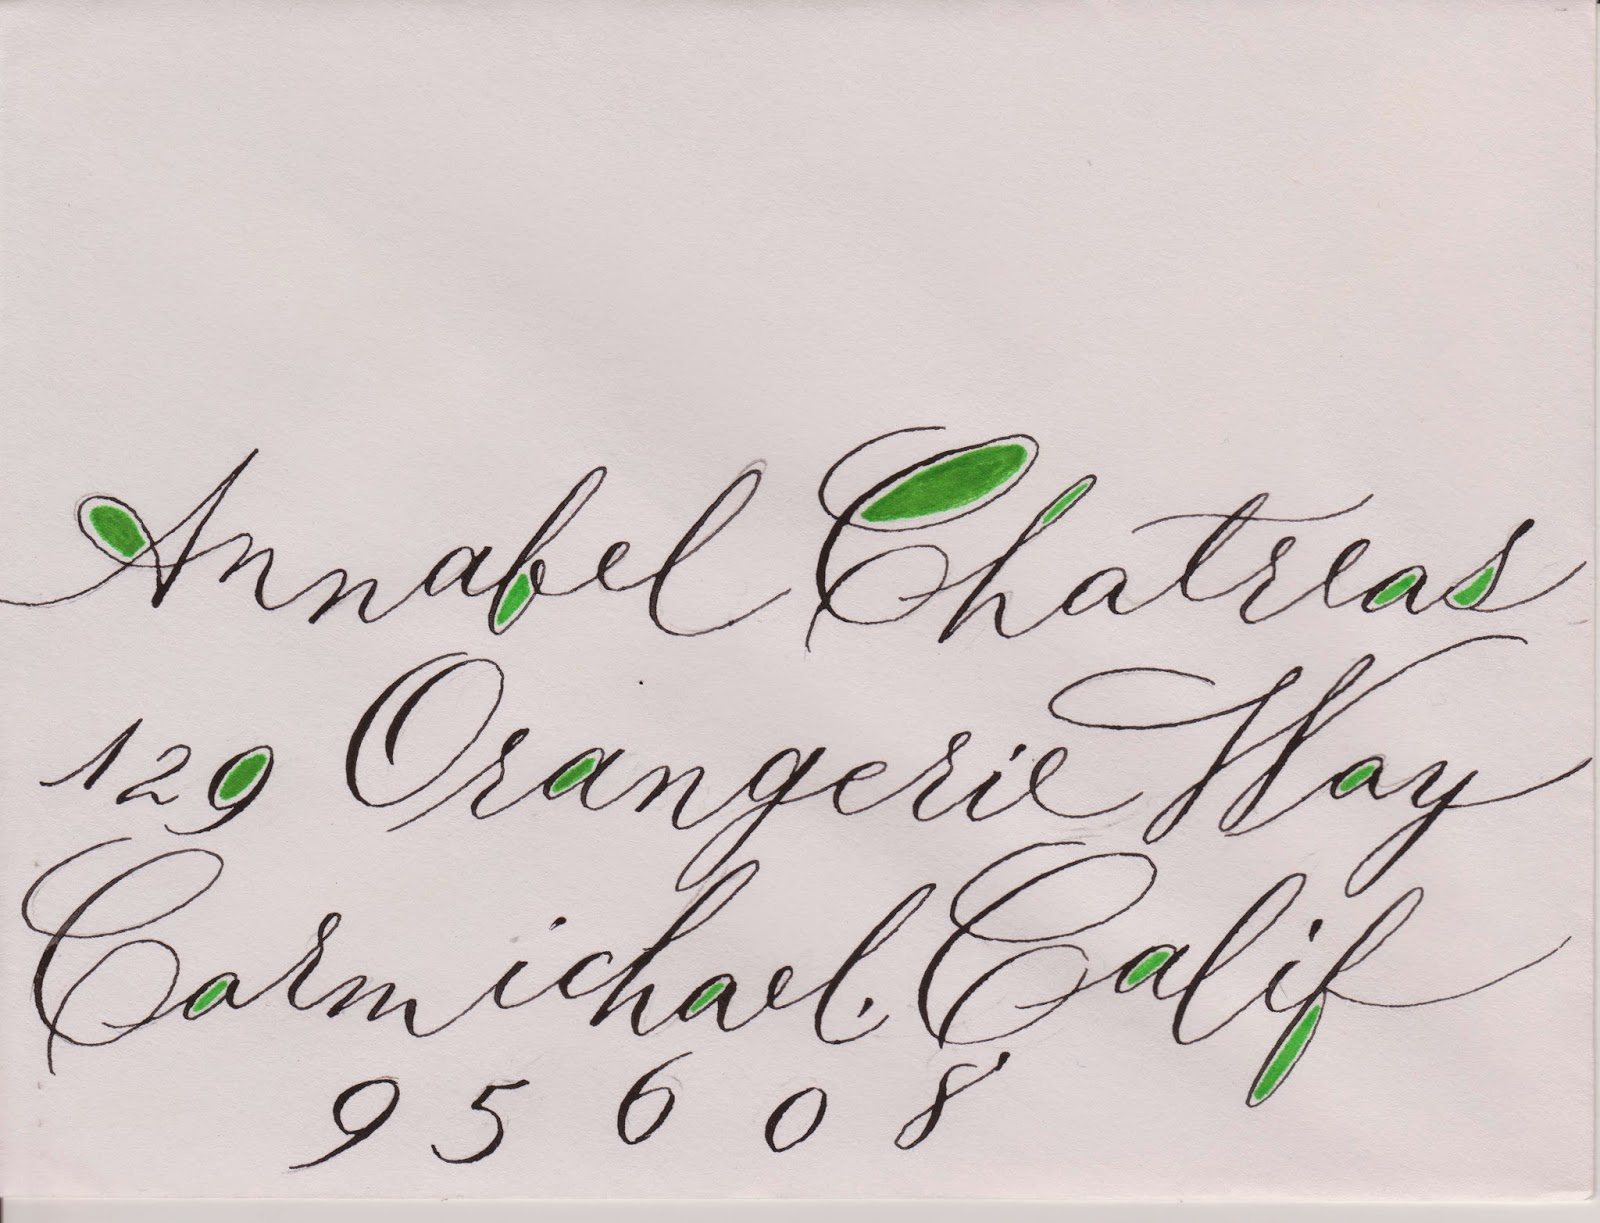 Annabel Chatreas
129 Orangerie Way
Carmichael, Calif
95608